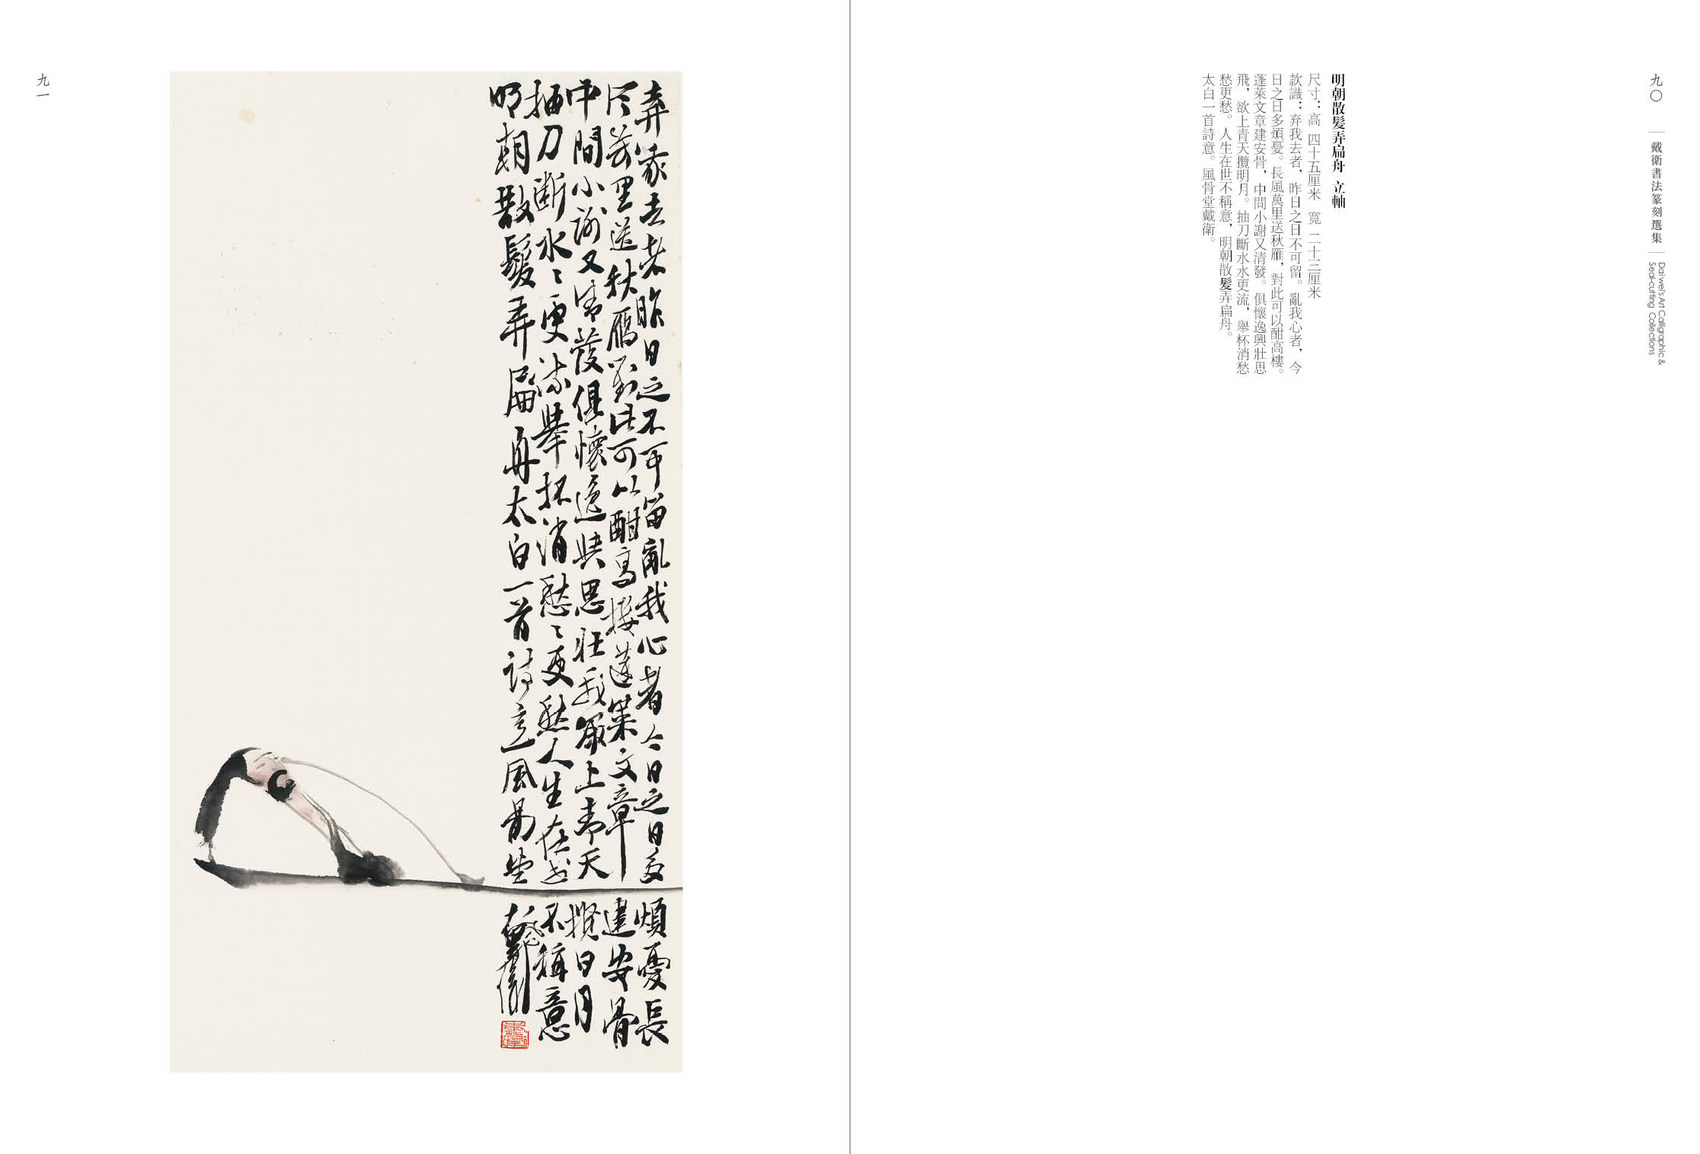 九〇
戴衛書法篆刻選集
Daiwei's Art Calligraphic &
Seal-cutting Collections
明朝散髮弄扁舟 立軸
尺寸：高 四十五厘米 寬 二十三厘米
款識：弃我去者，昨日之日不可留。亂我心者，今
日之日多煩憂。長風萬里送秋雁，對此可以酣高樓。
蓬萊文章建安骨，中間小謝又清發。俱懷逸興壯思
飛，欲上青天攬明月。抽刀斷水水更流，舉杯消愁
愁更愁。人生在世不稱意，明朝散髮弄扁舟。
太白一首詩意。風骨堂戴衛。
弃我去者昨日之不可留亂我心者今日之日多煩憂長
風萬里送秋雁對此可以酣高樓蓬萊文章建安骨
中間小謝又清發俱懷逸興思壯飛欲上青天攬日月
抽刀断水〻更流舉杯消愁〻更愁人生在世不稱意
明朝散髮弄扁舟太白一首詩意風骨堂戴衛
九一